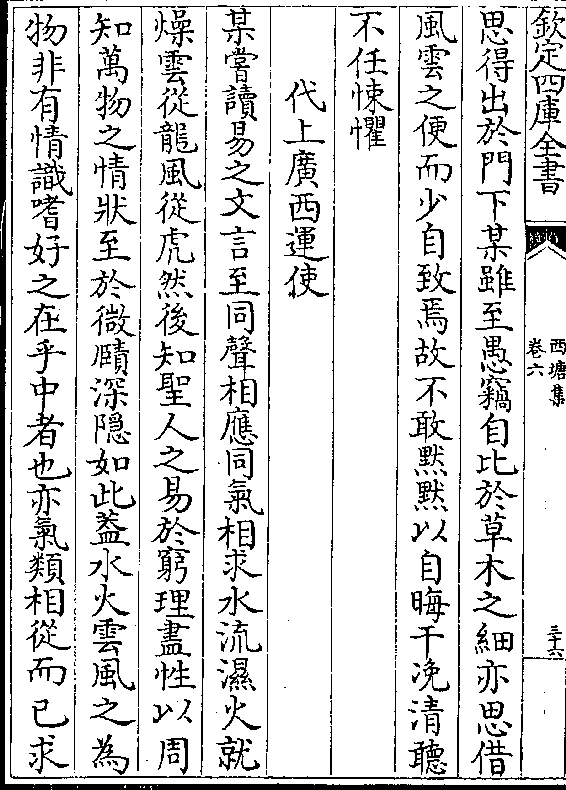 欽定四庫全書
西塘集
卷六
三十六
思得出於門下某雖至愚竊自比於草木之細亦思借
風雲之便而少自致焉故不敢默默以自晦干凂清聽
不任悚懼
代上廣西運使
某嘗讀易之文言至同聲相應同氣相求水流濕火就
燥雲從龍風從虎然後知聖人之易於窮理盡性以周
知萬物之情狀至於微賾深隠如此葢水火雲風之為
物非有情識嗜好之在乎中者也亦氣類相從而已求